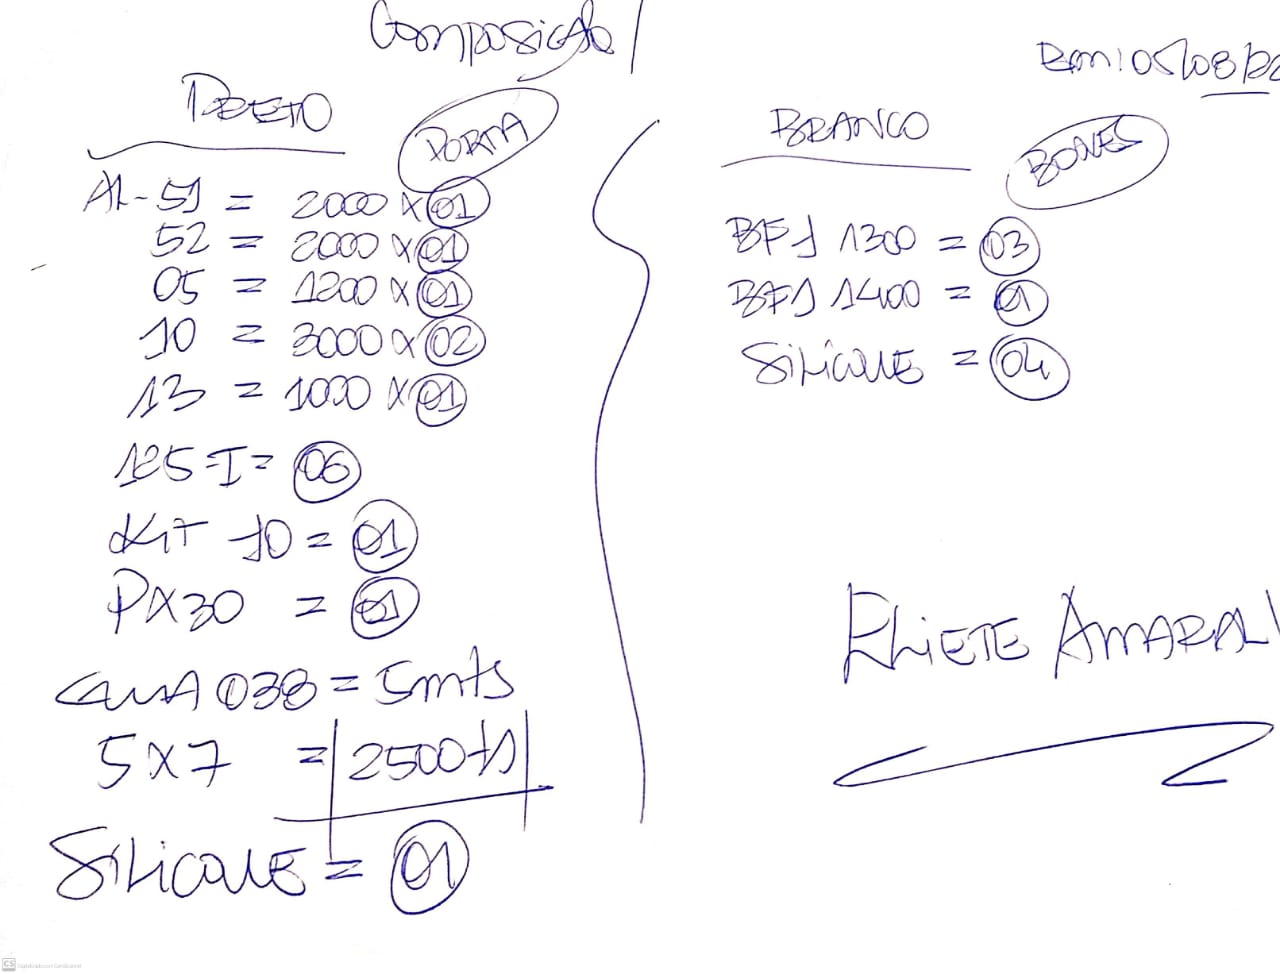 Composição
PRETO
PORTA
AL-51 = 2000 X 01
52 = 2000 X 01
05 = 1200 X 01
10 = 3000 X 02
13 = 1000 X 01
125-I = 06
KIT 10 = 01
PX30 = 01
038 = 5mts
5X7 = 2500
SILICONE = 01
Em: 05/08/22
BRANCO
BONES
BF1 1300 = 03
BF1 1400 = 01
SILICONE = 04
ELIETE AMARAL
CS Digitalizado com CamScanner